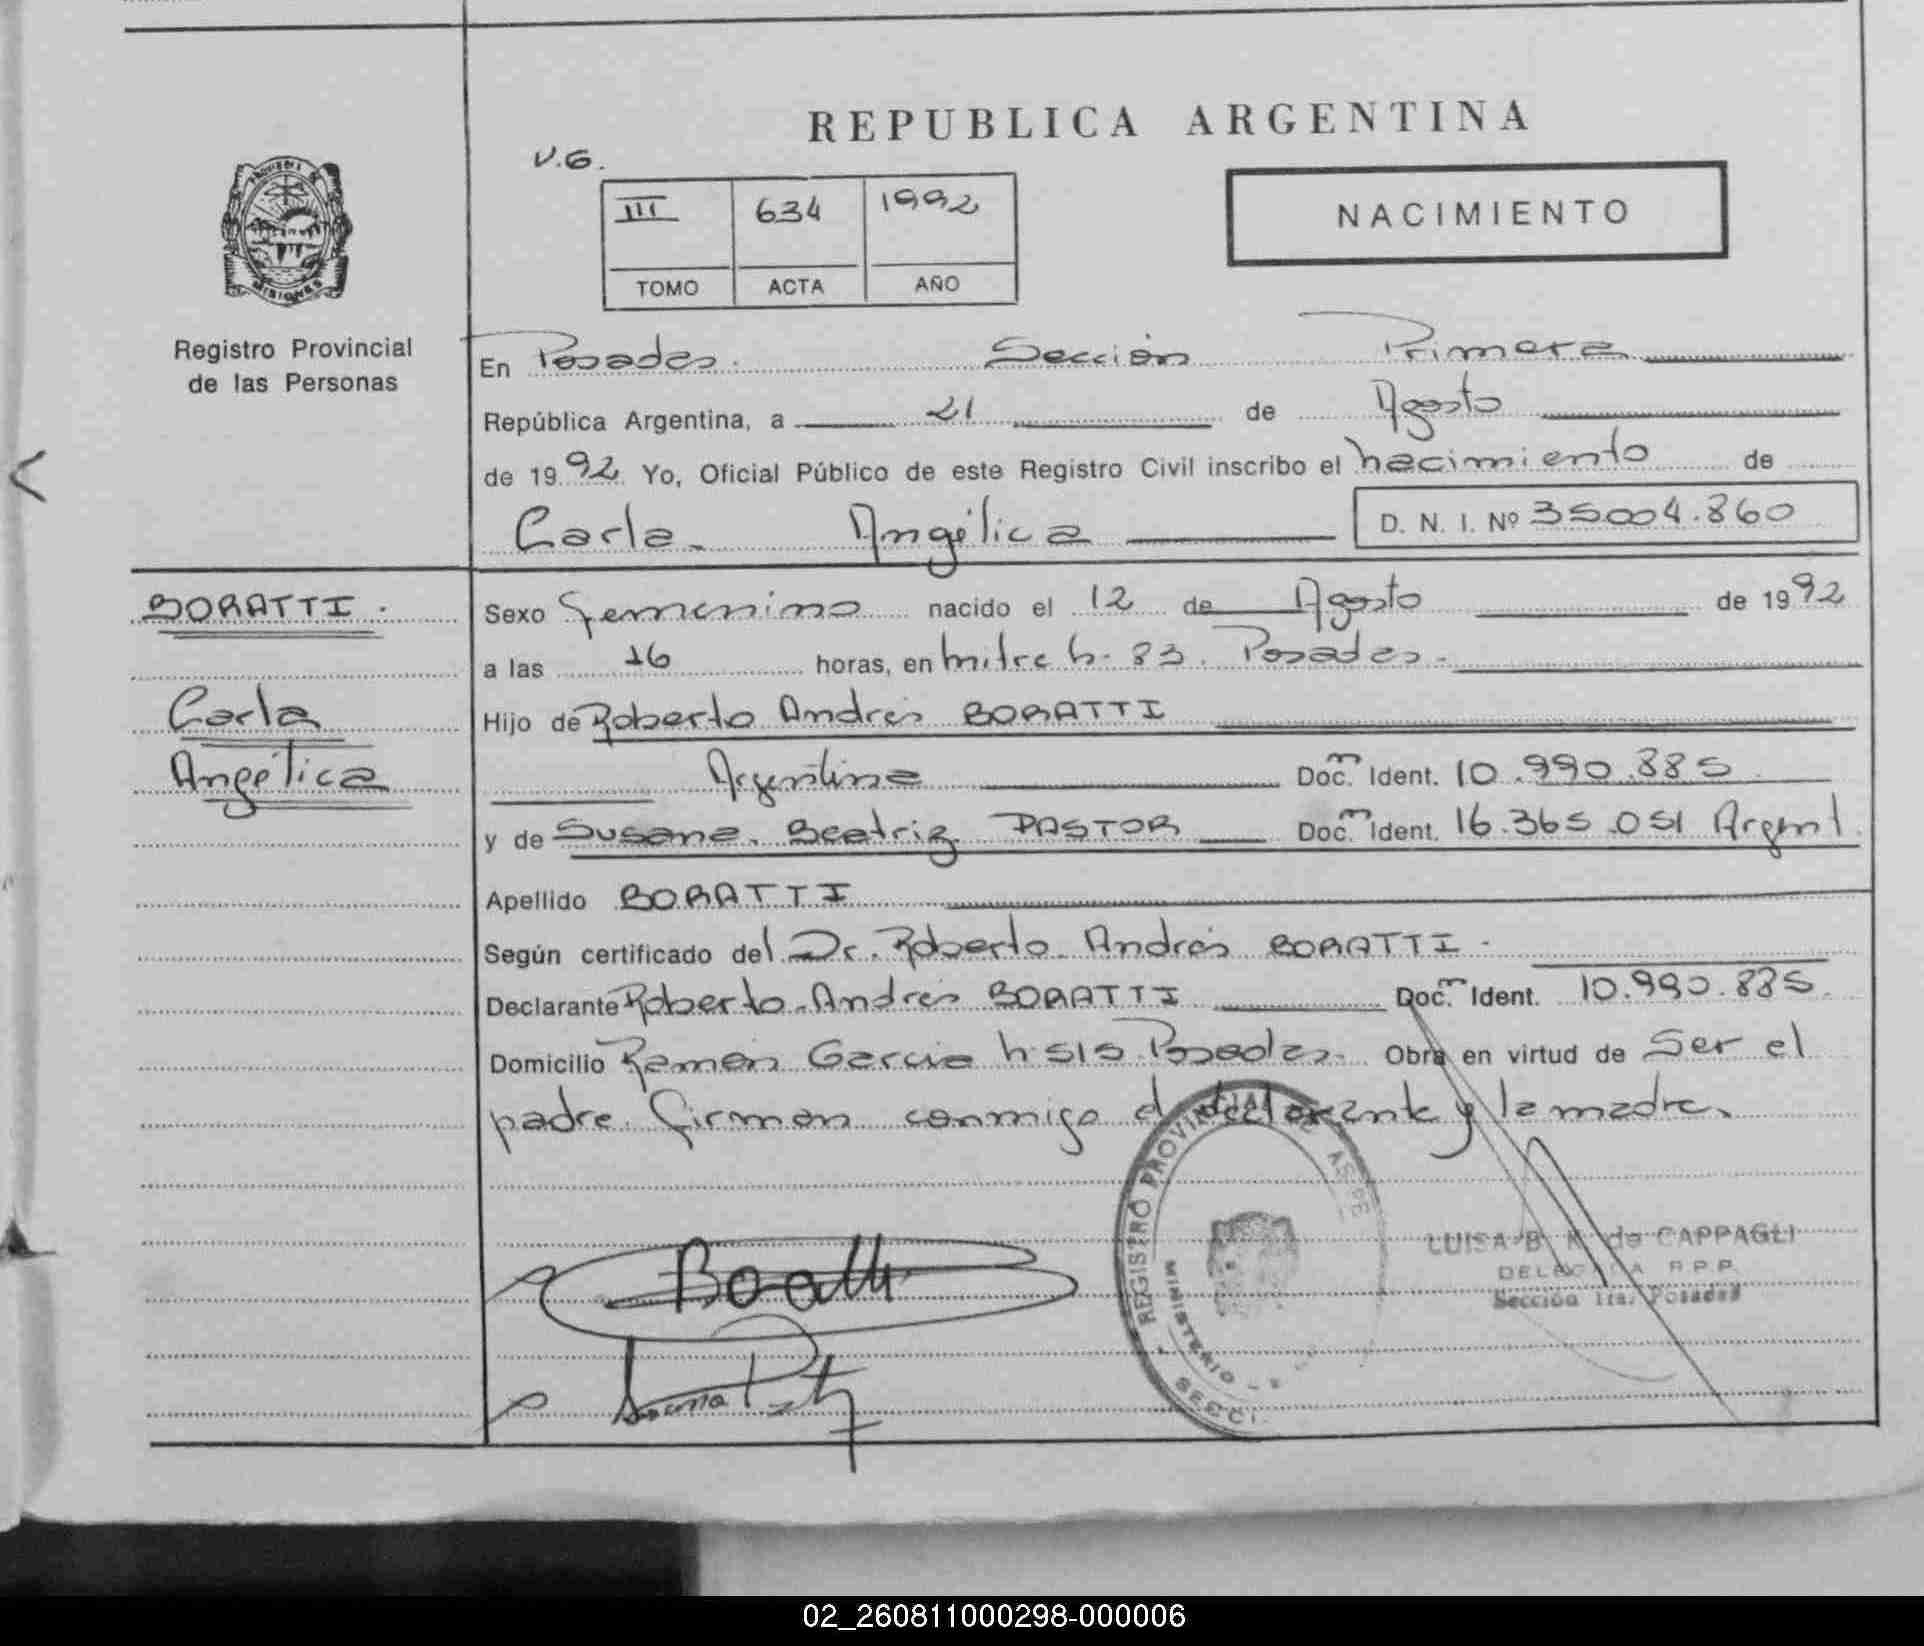 REPUBLICA ARGENTINA
V.G.
III 634 1992
TOMO ACTA AÑO
NACIMIENTO
PROVINCIA DE
MISIONES
Registro Provincial
de las Personas
En Posadas. Sección Primera
República Argentina, a 21 de Agosto
de 1992 Yo, Oficial Público de este Registro Civil inscribo el nacimiento de
Carla Angélica D. N. I. Nº 35004.860
BORATTI.
Carla
Angélica
Sexo femenino nacido el 12 de Agosto de 1992
a las 16 horas, en mitre h. 83. Posadas.
Hijo de Roberto Andrés BORATTI
Argentina Docm. Ident. 10.990.885
y de Susana Beatriz PASTOR Docm. Ident. 16.365.051 Argent.
Apellido BORATTI
Según certificado del Dr. Roberto Andrés BORATTI.
Declarante Roberto Andrés BORATTI Docm. Ident. 10.990.885.
Domicilio Ramón García h. 515 Posadas. Obra en virtud de Ser el
padre. firman conmigo el declarante y la madre.
REGISTRO PROVINCIAL
MINISTERIO
SECCI
LUISA B. K. de CAPPAGLI
DELEGADA R.P.P.
Sección 1ra. Posadas
Boratti
02_260811000298-000006